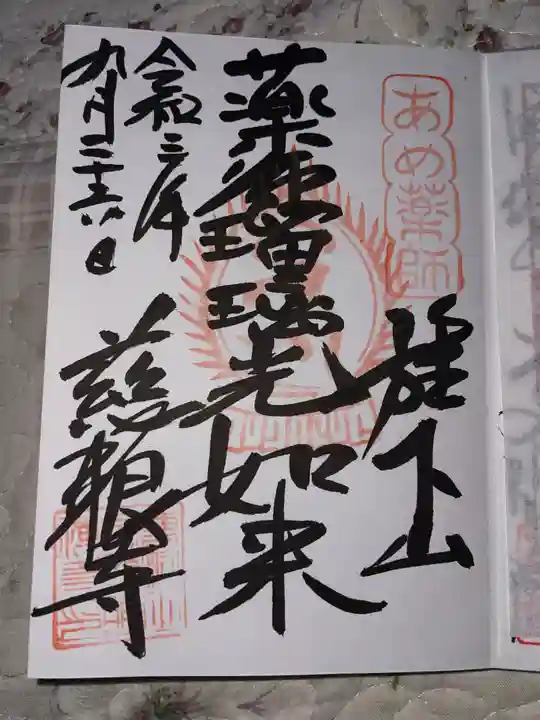 あめ薬師
下山
薬師瑠璃光如来
令和三年
九月二十六日
慈眼寺